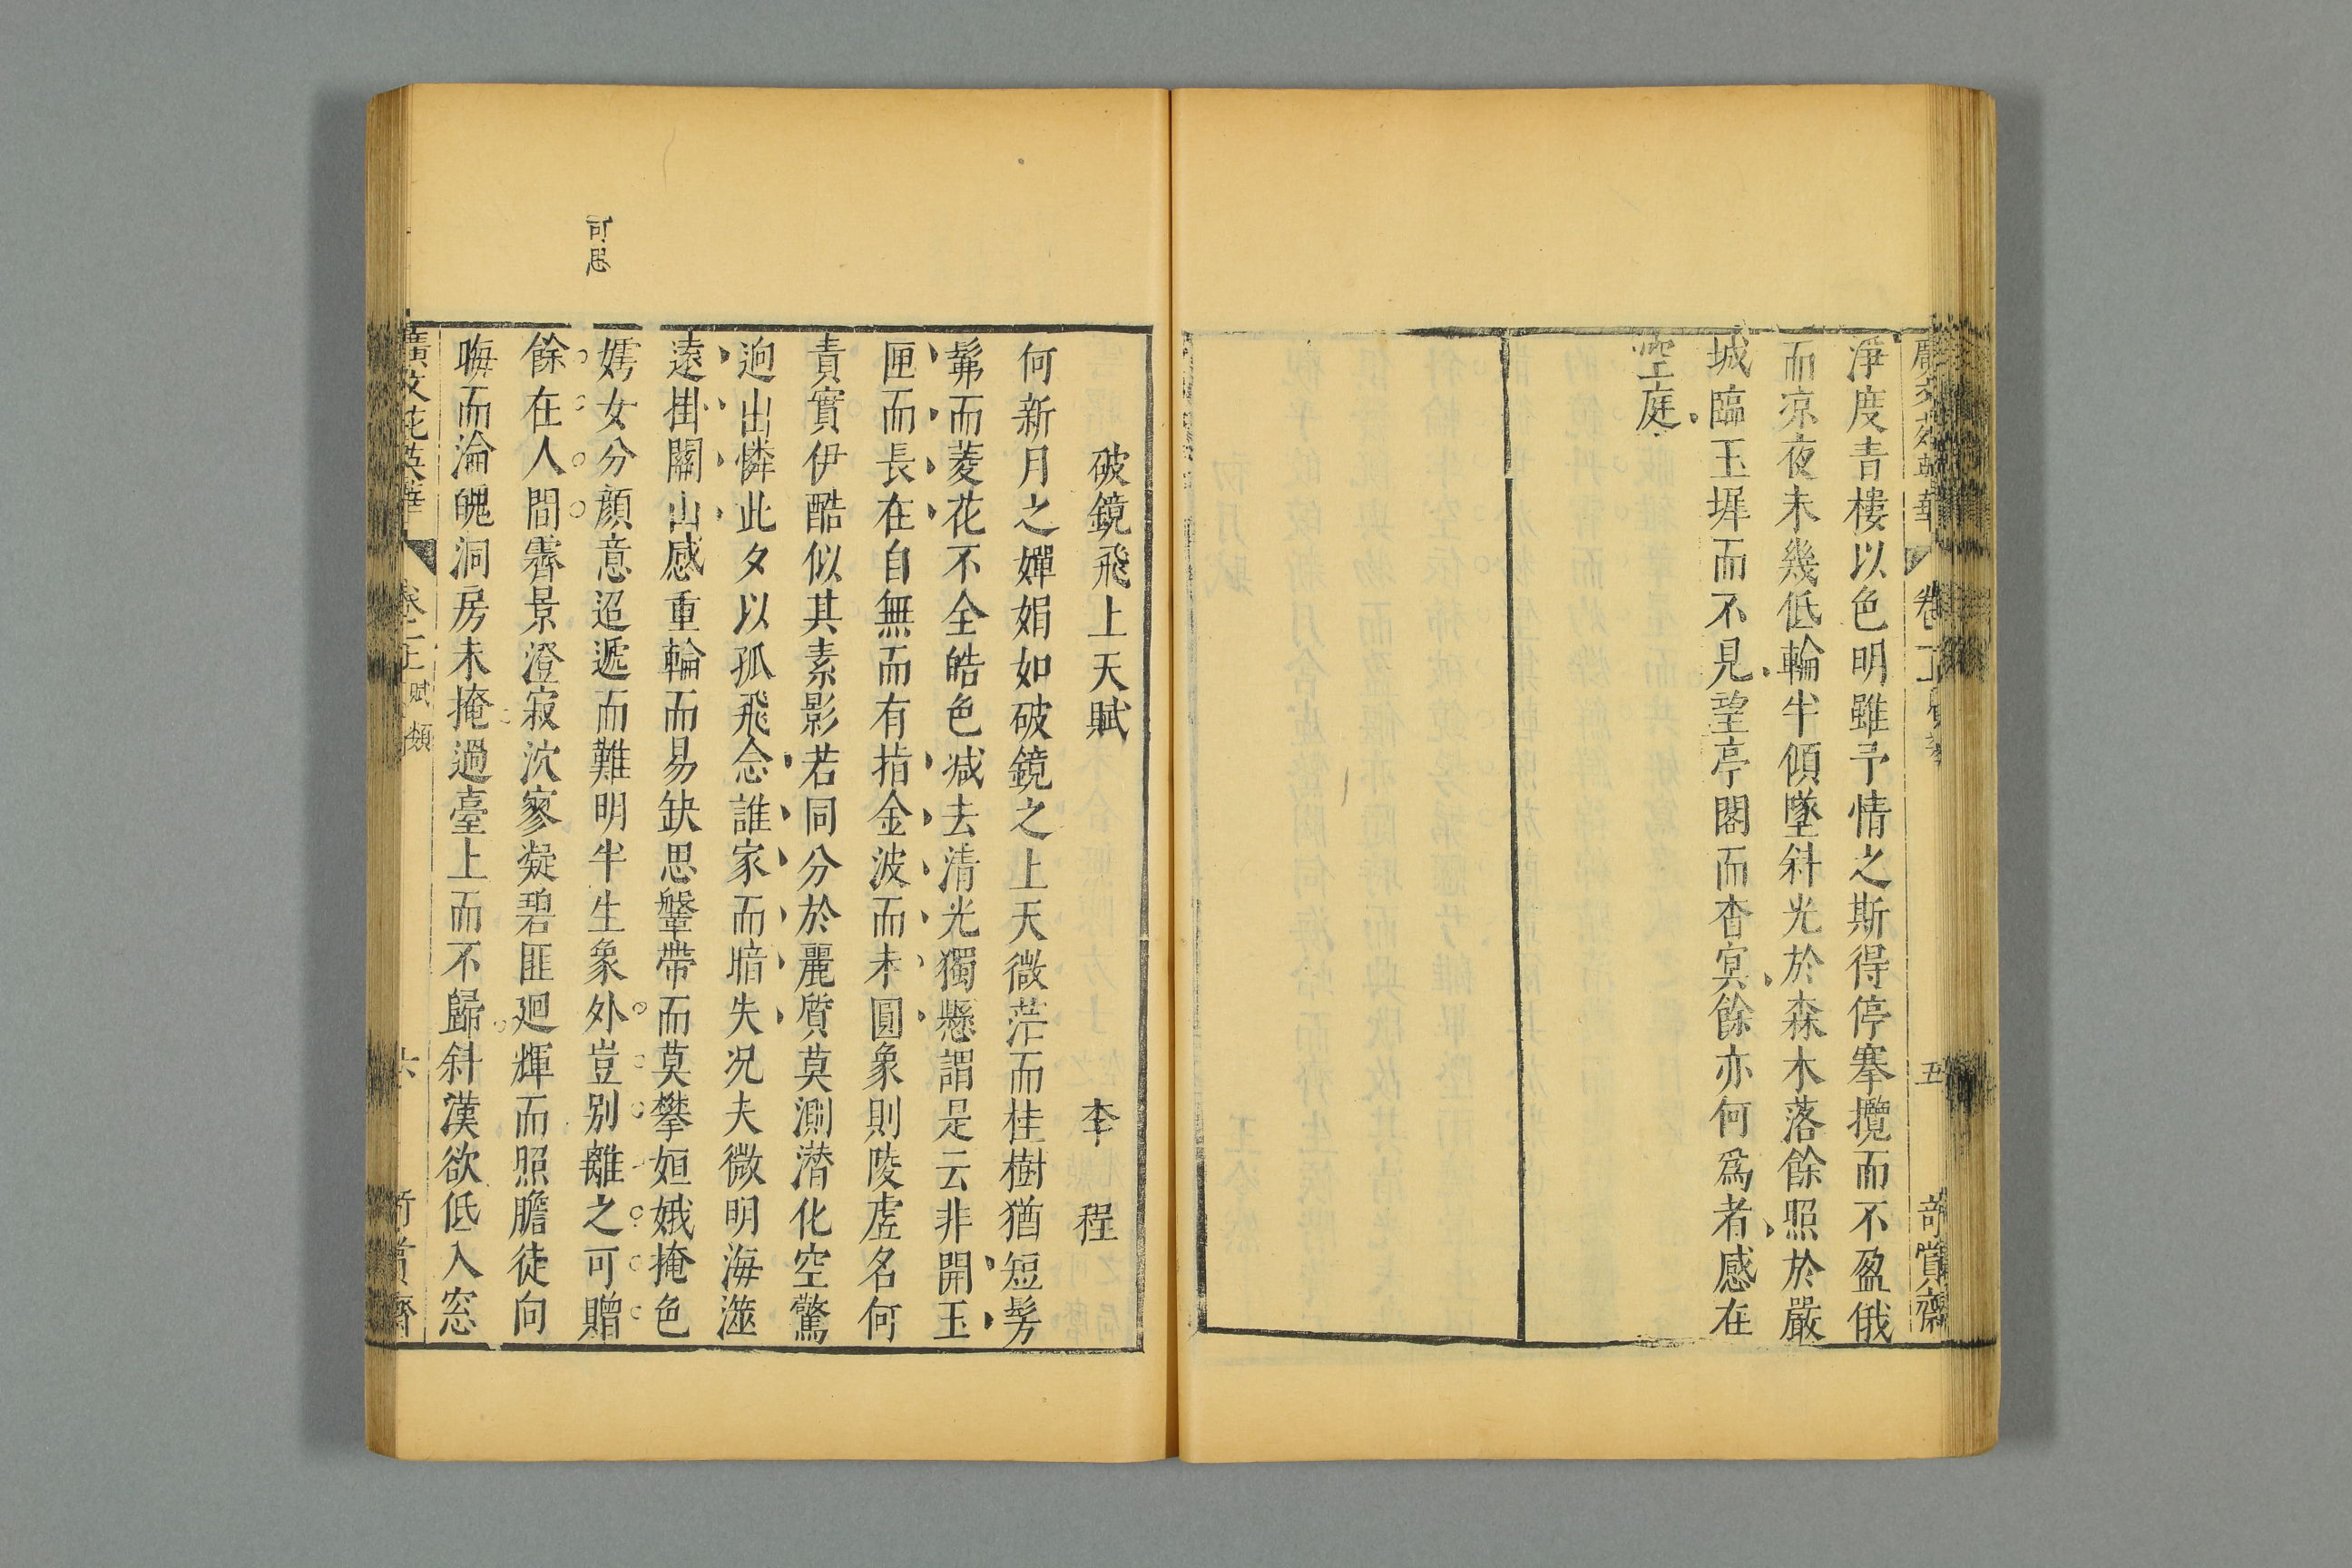 淨度青樓以色明雖予情之斯得停搴攬而不盈俄
而凉夜未幾低輪半傾墜斜光於森木落餘照於嚴
城臨玉墀而不見望亭閣而杳冥餘亦何爲者感在
空庭
卷
五
奇賞齋
破鏡飛上天賦 李程
何新月之嬋娟如破鏡之上天微茫而桂樹猶短髣
髴而菱花不全皓色减去清光獨懸謂是云非開玉
匣而長在自無而有指金波而未圓象則陵虛名何
責實伊酷似其素影若同分於麗質莫測潛化空驚
逈出憐此夕以孤飛念誰家而暗失况夫微明海滋
遠掛關山感重輪而易缺思鞶帶而莫攀姮娥掩色
嫣女分顔意迢遞而難明半生象外豈别離之可贈
可思
餘在人間霽景澄寂沈寥凝碧匪廻輝而照膽徒向
晦而淪魄洞房未掩過臺上而不歸斜漢欲低入窓
廣文苑英華 卷二上 賦類 六 奇賞齋